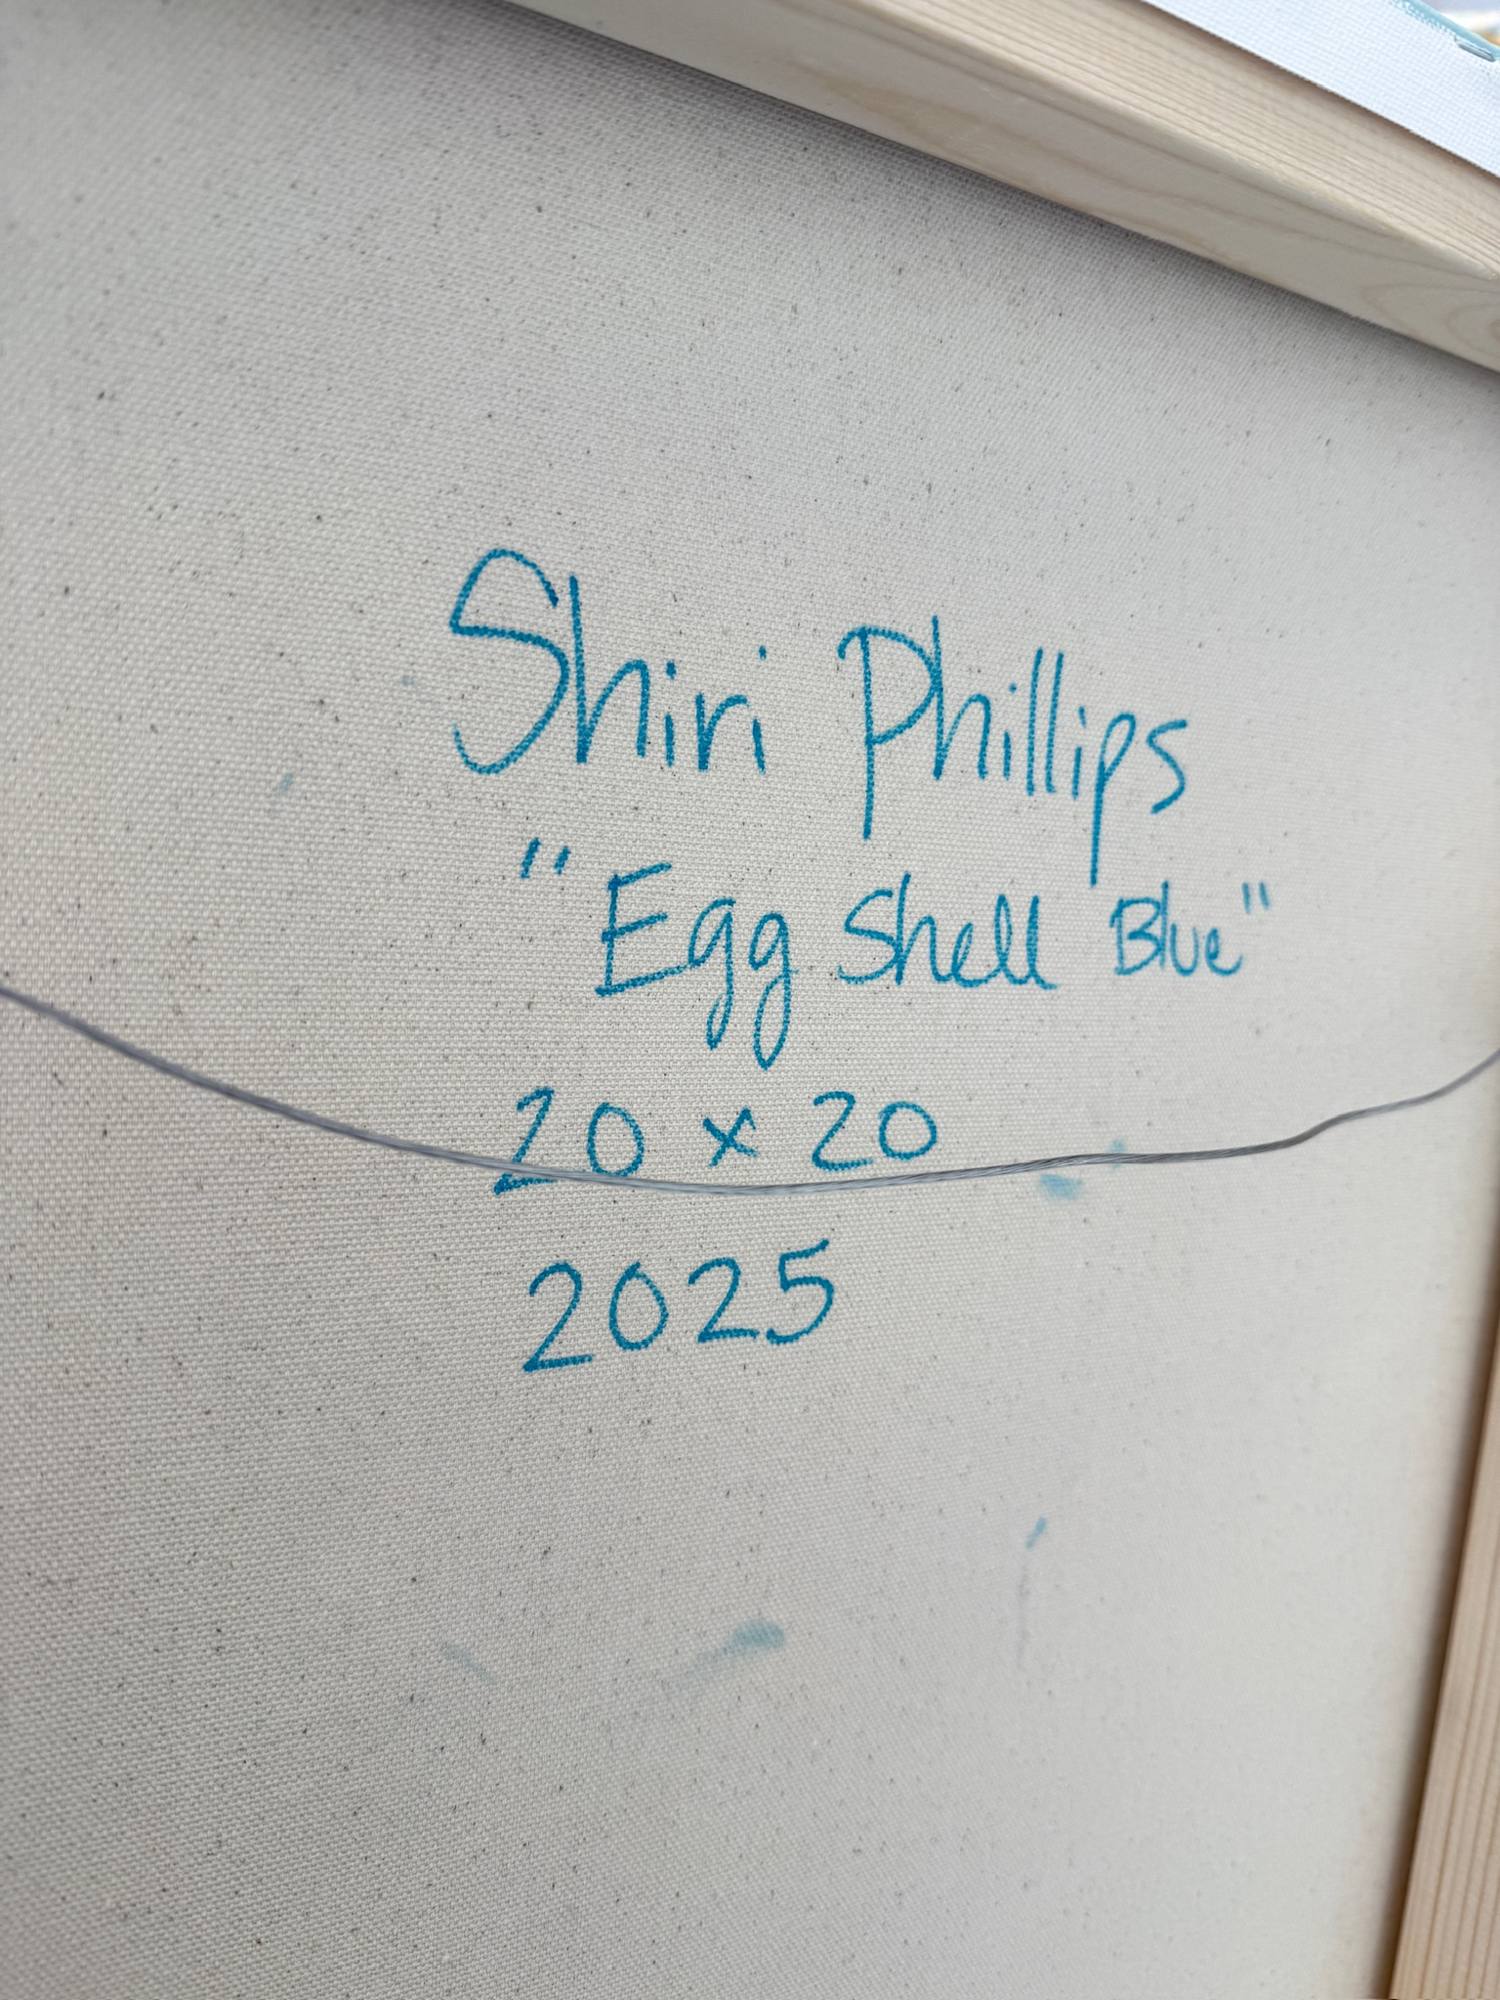 Shiri Phillips
"Egg Shell Blue"
20 x 20
2025